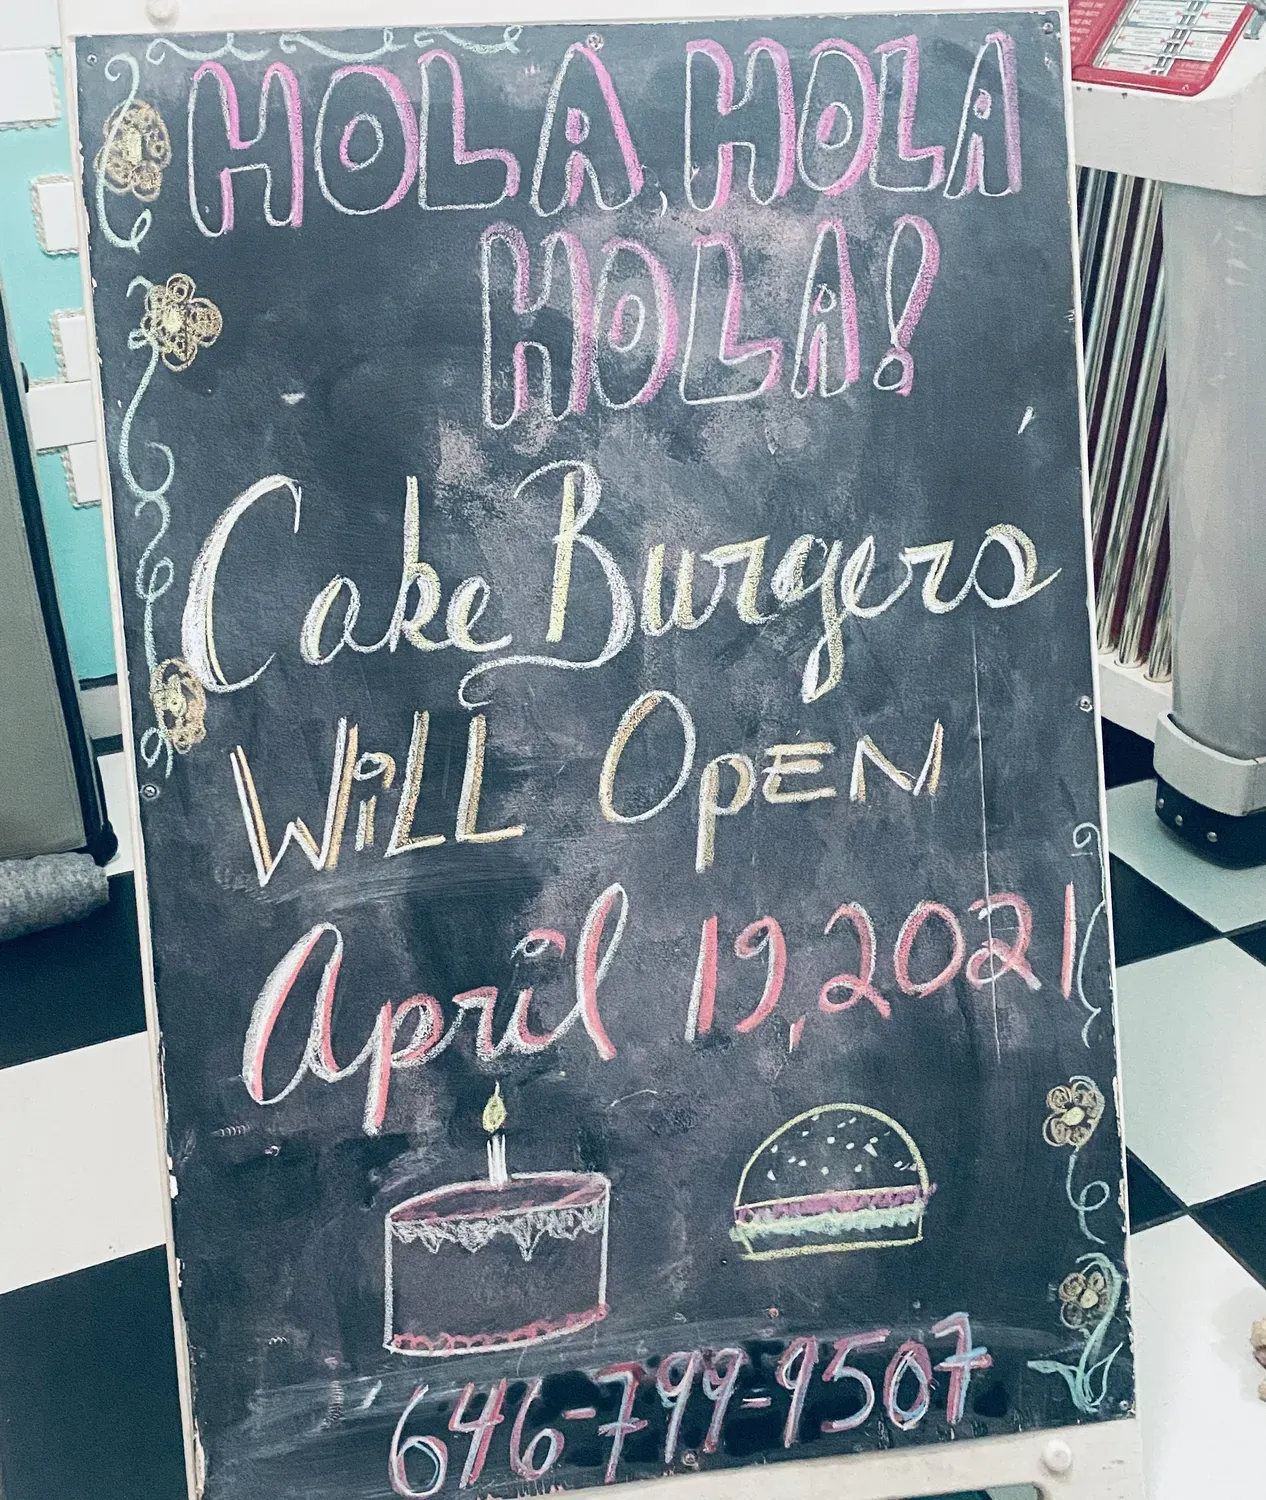 HOLA, HOLA
HOLA!
Cake Burgers
WiLL OpEN
April 19, 2021
646-799-9507